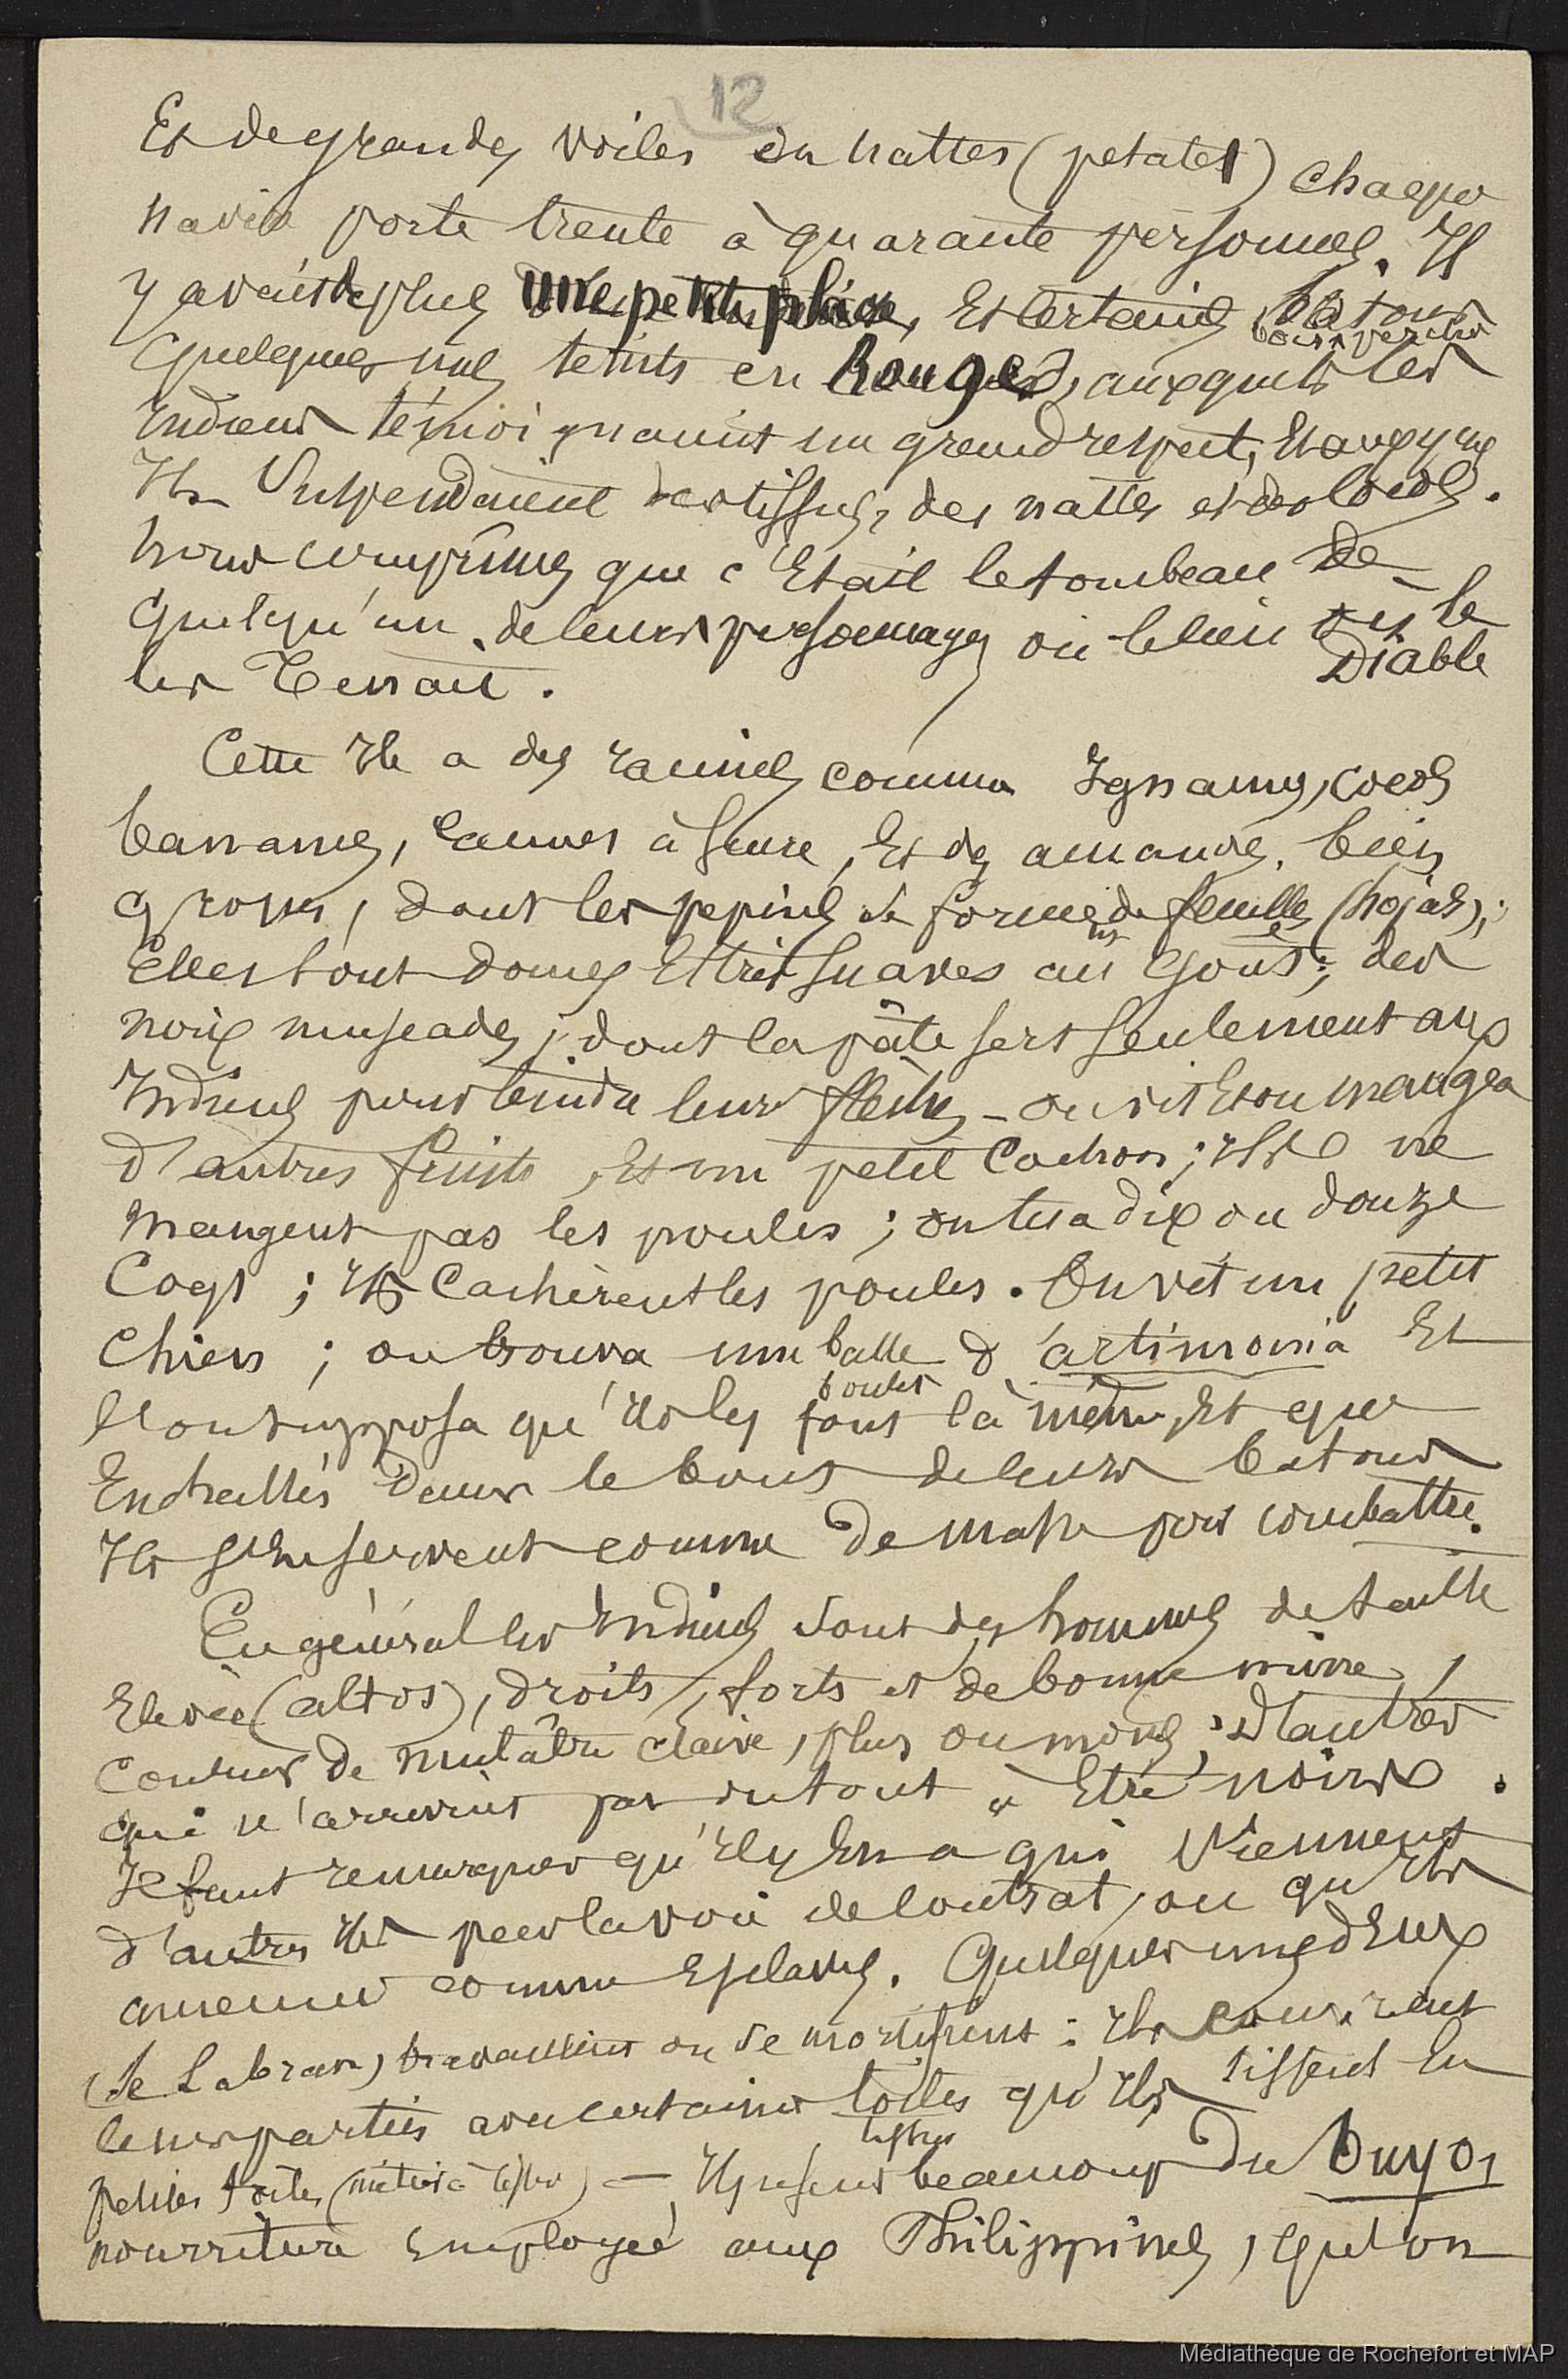 12
Et de grandes voiles en nattes (petates) chaque
navire porte trente à quarante personnes. Il
y avait de plus une petite place, et certains batons
bois verdis
quelques uns teints en Rouge, auxquels les
Indiens témoignaient un grand respect, et auxquels
Ils suspendaient des tissus, des nattes et des cocos.
nous comprîmes que c'Etait le tombeau de
quelqu'un de leurs personnages ou le lieu où le
Diable
les Tenait.
Cette Ile a des racines comme Ignames, cocos
bananes, cannes à sucre, Et des amandes, bien
grosses, dont les pepins se forment de feuilles (hojas);
Elles sont douces Et très suaves au Goût; des
noix muscades, dont la pâte sert seulement aux
Indiens pour teindre leurs flèches – on vit Et on mangea
d'autres fruits, Et un petit Cochon; Ils ne
mangent pas les poules; on tua dix ou douze
Coqs; Ils Cachèrent les poules. On vit un petit
Chien; on trouva une balle d'artimonia Et
boules
l'on supposa qu'Ils les font là même, Et que
Enchassés dans le bout de leurs batons
Ils s'En servent comme de masse pour combattre.
En général les Indiens sont des hommes de taille
Elevée (altos), droits, forts et de bonne mine,
couleur de mulâtre claire, plus ou moins; d'autres
qui n'arrivent pas du tout à Etre noirs.
Il faut remarquer qu'Il y En a qui Viennent
d'autres Iles par la voie de contrat, ou qu'Ils
amenent comme Esclaves. Quelques uns d'Eux
(se Labran) travaillent ou se mortifient: Ils couvrent
leurs parties avec certaines toiles qu'Ils tissent En
tissus
petites toiles (métier à tisser) — Ils usent beaucoup du buyos
nourriture Employée aux Philippines, qu'on
Médiathèque de Rochefort et MAP